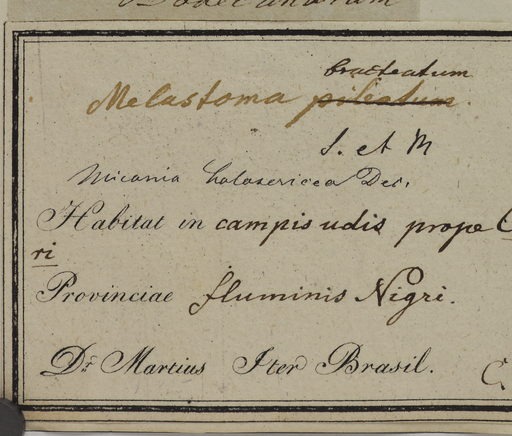 bracteatum
Melastoma pileatum.
S. et M
Miconia holosericea Dec.
Habitat in campis udis prope
ri
Provinciae fluminis Nigri.
Dr. Martius Iter Brasil.
C